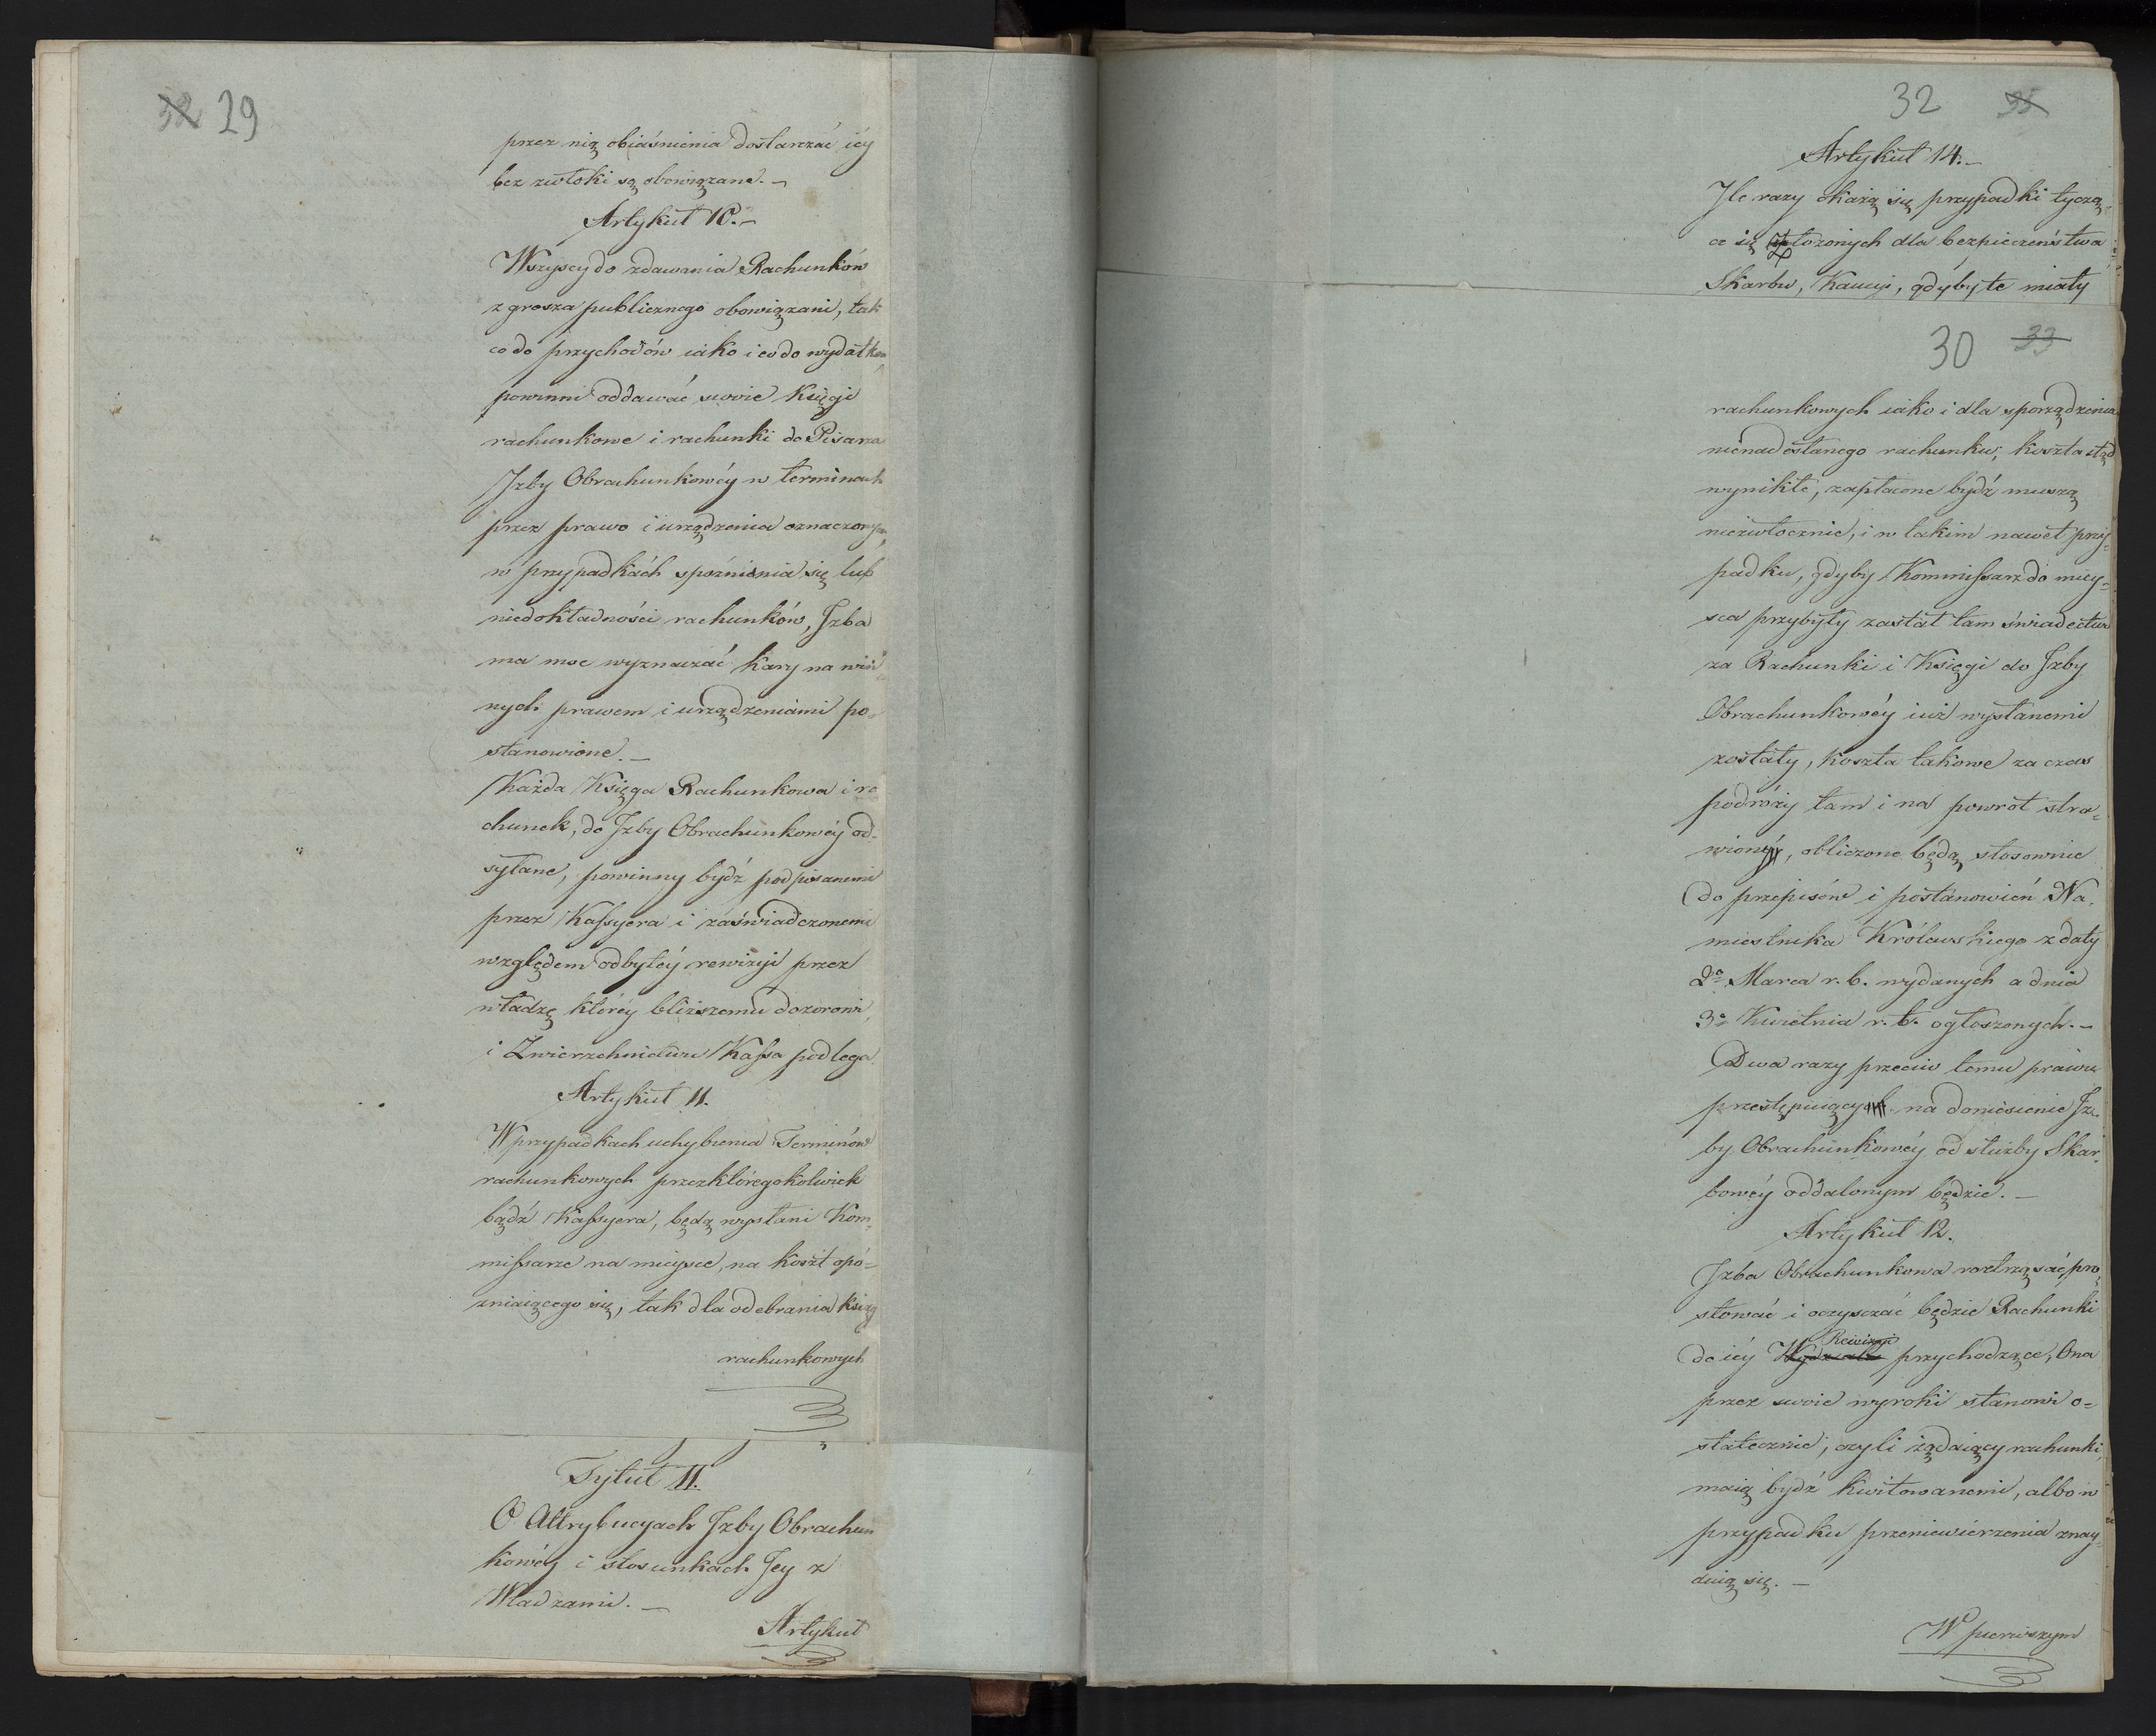 32 29
przez nię obiaśnienia dostarczać iéy
bez zwłoki są obowiązane. –
Artykuł 10. –
Wszyscy do zdawania Rachunków
z grosza publicznego obowiązani, tak
co do przychodów iako i co do wydatków
powinni oddawać swoie Księgi
rachunkowe i rachunki do Pisarza
Izby Obrachunkowéy w terminach
przez prawo i urządzenia oznaczonych,
w przypadkach spóźnienia się lub
niedokładności rachunków, Izba
ma moc wyznaczać kary na win
nych prawem i urządzeniami po-
stanowione. –
Każda Księga Rachunkowa i ra
chunek, do Izby Obrachunkowéy od-
syłane, powinny bydź podpisanemi
przez Kassyera i zaświadczonemi
względem odbytéy rewizyi przez
władzę któréy bliższemu dozorowi,
i Zwierzchnictwu Kassa podlega
Artykuł 11.
W przypadkach uchybienia Terminów
rachunkowych przez któregokolwiek
bądź Kassyera, będą wysłani Kom-
missarze na mieysce, na koszt opó-
zniaiącego się, tak dla odebrania ksiąg
rachunkowych
Tytuł II.
O Attrybucyach Izby Obrachun
kowéy i stosunkach Jey z
Władzami. –
Artykuł
32 35
Artykuł 14. –
Ile razy okażą się przypadki tyczą-
ce się złożonych dla bezpieczeństwa
Skarbu, Kaucyi, gdyby te miały
30 33
rachunkowych iako i dla sporządzenia
nienadesłanego rachunku; koszta ztąd
wynikłe, zapłacone bydź muszą
niezwłocznie, i w takim nawet przy-
padku, gdyby Kommissarz do miey-
sca przybyły zastał tam świadectwa
za Rachunki i Księgi do Izby
Obrachunkowéy iuż wysłanemi
zostały, koszta takowe za czas
podróży tam i na powrót stra-
wiony, obliczone będą stosownie
do przepisów i postanowień Na-
miestnika Królewskiego z daty
2o Marca r. b. wydanych a dnia
3o Kwietnia r. b. ogłoszonych. –
Dwa razy przeciw temu prawu
przestępuiący na doniesienie Iz-
by Obrachunkowéy od służby Skar-
bowéy oddalonym będzie. –
Artykuł 12.
Izba Obrachunkowa roztrząsać, pro-
stować i oczyszczać będzie Rachunki
do iéy Rewizyi przychodzące, Ona
przez swoie wyroki stanowi o-
statecznie, czyli żądaiący rachunki,
maią bydź kwitowanemi, albo w
przypadku przeniewierzenia znay-
duią się. –
W pierwszym